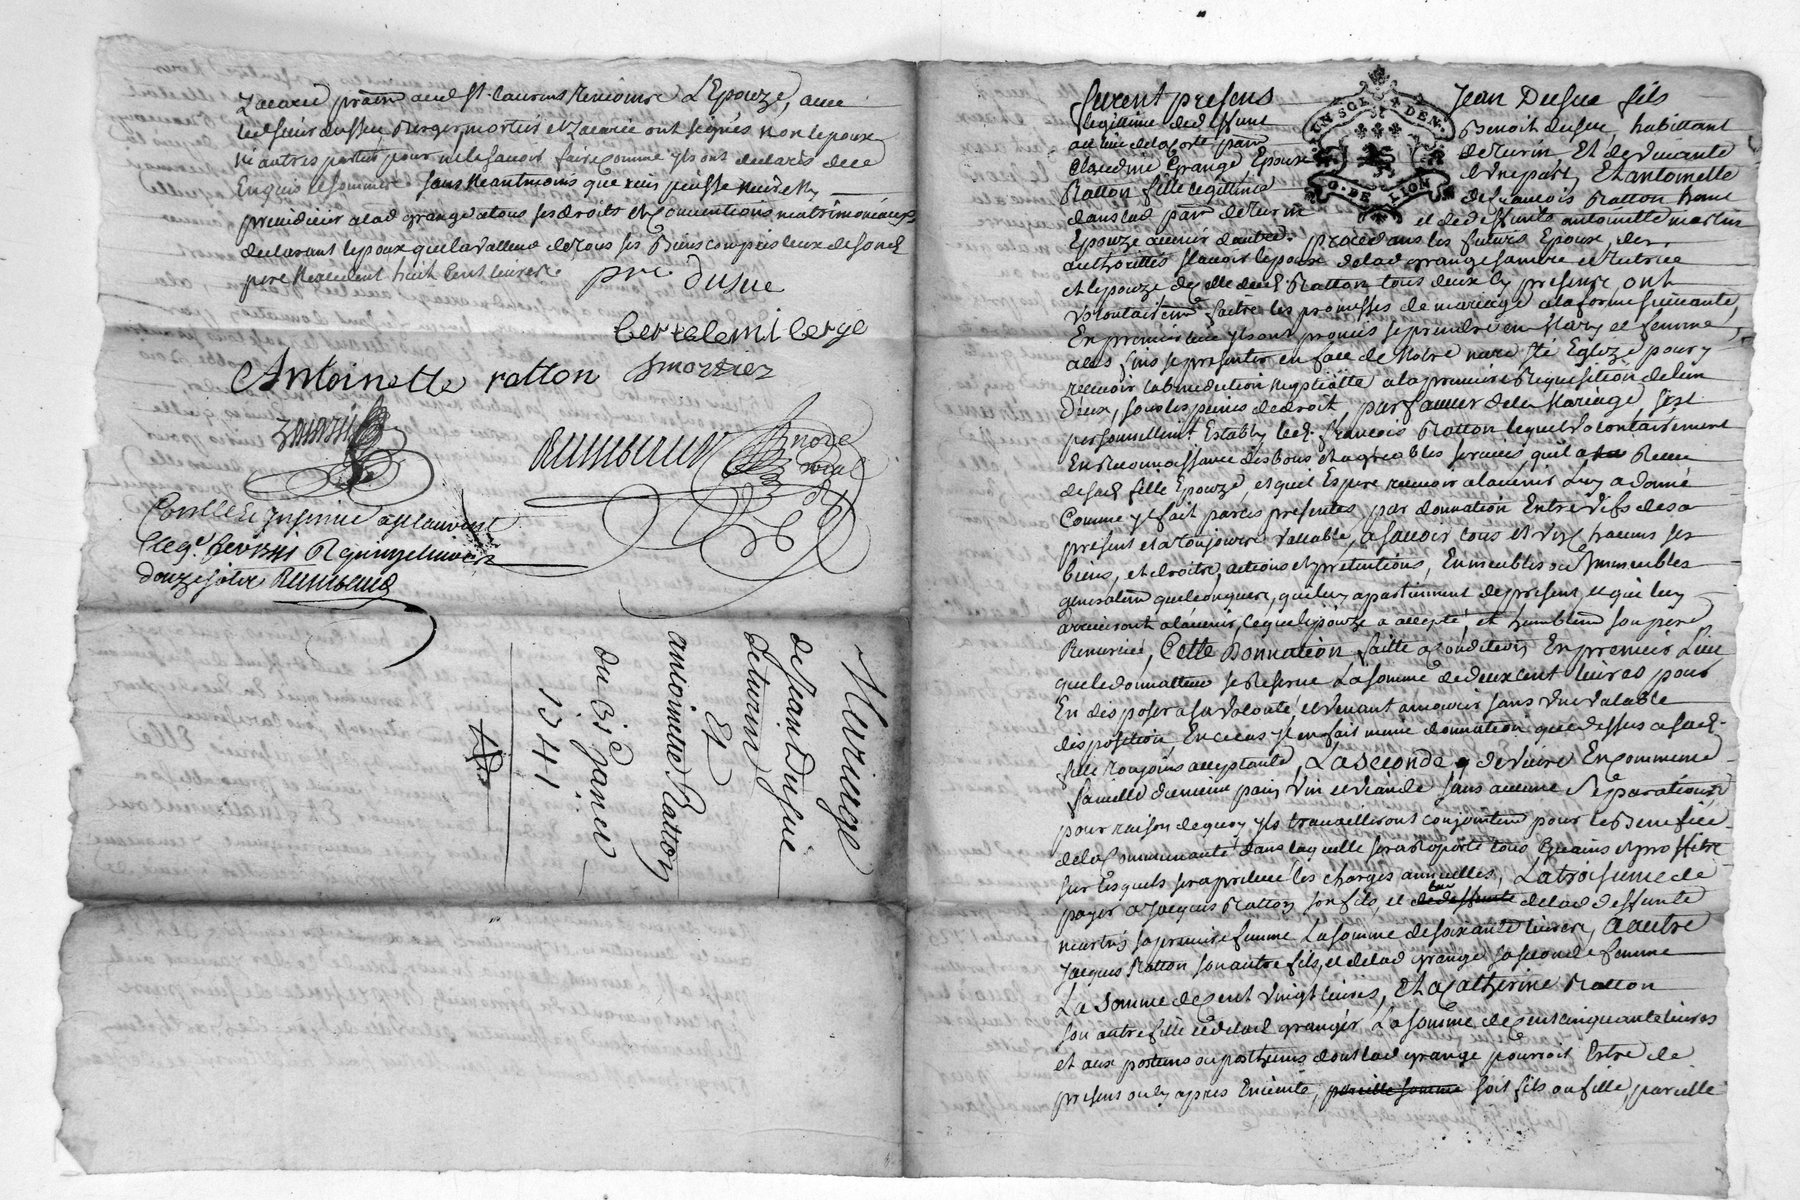 Zacarie prattn aud St. Laurens temoins L'Epouze, avec
lesd sieurs dusuc Berger mortier et Zacarie ont signés non lepoux
ni autres parties pour ne le savoir faire comme ils ont declarés de ce
Enquis et sommés. sans neantmoins que rien puisse nuire ny
prejudicier a lad grange a tous ses droits et conventions matrimoniaux
declarant lepoux que la valleur de tous ses Biens compris ceux de son d
pere nexcedent huit Cent livres
pre dusuc
bertelemi berge
Antoinette ratton
J mortier
Zacarie
Conllé et insinué a St laurent
Reçu
douze sols
Mariage
de Jean Dusuc
de turin
Et
antoinette Ratton
du 31e janvier
1741
furent presens
UN SOL
DEN.
G. DE LION
Jean Dusuc fils
legittime de deffunt
Benoit dusuc, habittant
au lieu de laforte parr
de turin Et de vivante
Claudine Grange Epoux
d'une part, Et antoinette
Ratton fille legittime
de francois Ratton
dans lad parr de turin
et de deffunte antoinette martin
Epouze avenir dautre. procedans les futurs Epoux, de
authorittés scavoir lepoux de lad grange sa mere et tutrice
et lepouze de celle dud Ratton tous deux cy presens, ont
volontairem faitte les promesses de mariage a la forme suivante,
En premier lieu ils ont promis se prendre en Mary et femme,
a ces fins se presenter en face de Notre mere Ste Eglize pour y
recevoir la benediction nuptialle a la premiere Requisition de lun
d'eux, sous les peines de droit, par faveur de ce Mariage sest
personnellent Estably led. francois Ratton lequel volontairement
En Reconnoissance des bons et agreables services qu'il a Receu
de sad fille Epouze, et quil Espere recevoir a lavenir Luy a donné
Comme il fait par ces presentes par donnation Entre vifs des a
present et a toujours vallable, a scavoir tous et un chacuns ses
biens, et droits, actions et pretentions, En meubles ou immeubles
generalem quelconques, quil luy apartiennent de present, et qui luy
arriveront a lavenir, ce que lepouze a accepté, et humblem son pere
Remercie, Cette Donnation faitte a Condition En premier Lieu
que le donnatteur se Reserve La somme de deux cent livres pour
En disposer a sa volonté et venant a mourir sans une valable
disposition En ce cas il en fait meme donnation que dessus a sad.
fille toujours acceptante, La seconde, de vivre En commune
famille d'un meme pain, vin et viande sans aucune Separation
pour raison de quoy ils travailleront conjointem pour le Benefice
de la Communauté dans laquelle sera aporte tous Gains et proffits
sur lesquels sera prelevé les charges annuelles, La troisieme de
payer a Jacques Ratton son fils, et de lad deffunte
martin sa premiere femme La somme de soixante livres, a autre
Jacques Ratton son autre fils, et de lad grange sa seconde femme
La somme de Cent Vingt livres, Et a Catherine Ratton
son autre fille et de lad granger La somme de Cent cinquante livres
et aux postumes ou posthumes dont lad grange pourroit Estre de
present ou cy apres Enceinte, pareille somme soit fils ou fille, pareille